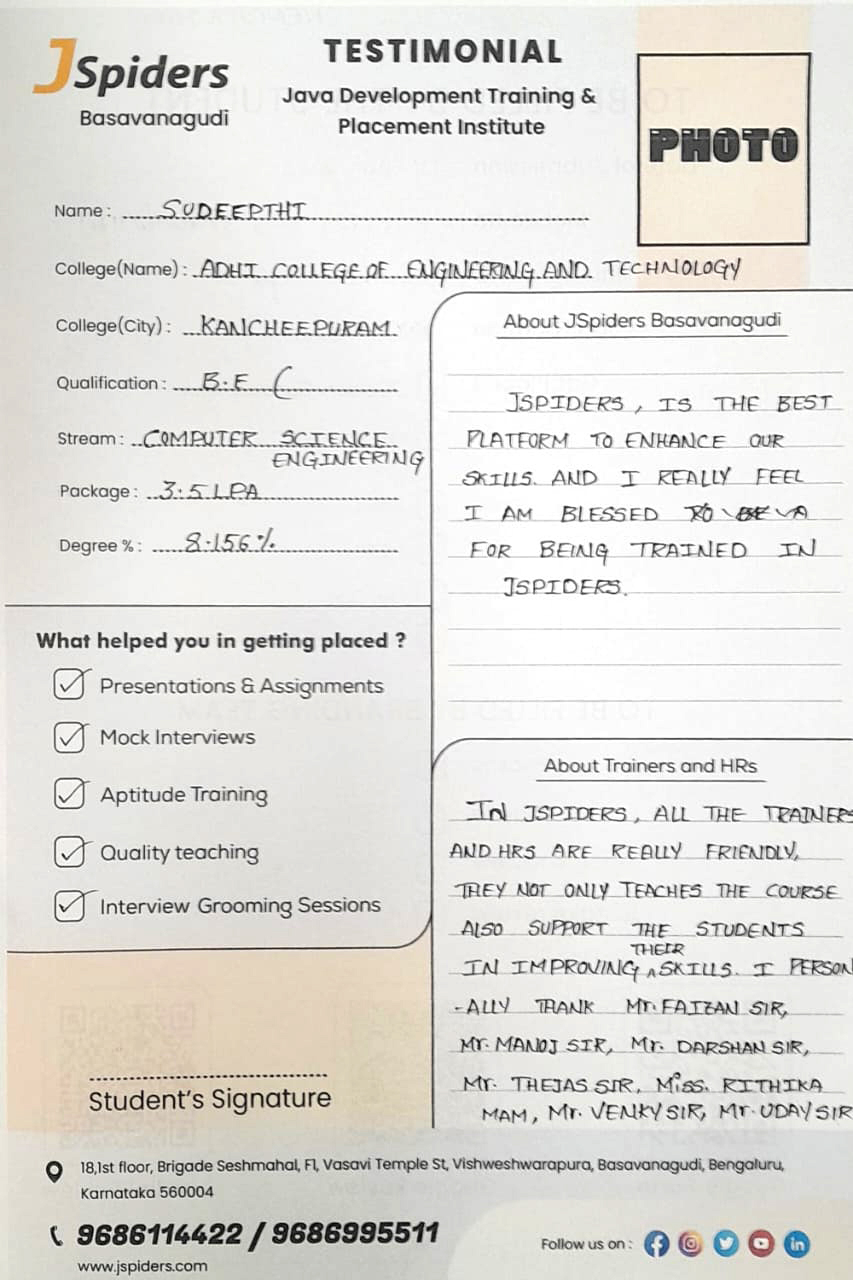 JSpiders
Basavanagudi
TESTIMONIAL
Java Development Training &
Placement Institute
PHOTO
Name : SUDEEPTHI
College(Name) : ADHI COLLEGE OF ENGINEERING AND TECHNOLOGY
College(City) : KANCHEEPURAM
Qualification : B.E (
Stream : COMPUTER SCIENCE
ENGINEERING
Package : 3.5 LPA
Degree % : 8.156 %
What helped you in getting placed ?
Presentations & Assignments
Mock Interviews
Aptitude Training
Quality teaching
Interview Grooming Sessions
Student's Signature
About JSpiders Basavanagudi
JSPIDERS, IS THE BEST
PLATFORM TO ENHANCE OUR
SKILLS. AND I REALLY FEEL
I AM BLESSED
FOR BEING TRAINED IN
JSPIDERS.
About Trainers and HRs
IN JSPIDERS, ALL THE TRAINERS
AND HRS ARE REALLY FRIENDLY,
THEY NOT ONLY TEACHES THE COURSE
ALSO SUPPORT THE STUDENTS
THEIR
IN IMPROVING ^ SKILLS. I PERSON
-ALLY THANK Mr. FAIZAN SIR,
Mr. MANOJ SIR, Mr. DARSHAN SIR,
Mr. THEJAS SIR, Miss. RITHIKA
MAM, Mr. VENKY SIR, Mr. UDAY SIR
18,1st floor, Brigade Seshmahal, F1, Vasavi Temple St, Vishweshwarapura, Basavanagudi, Bengaluru,
Karnataka 560004
9686114422 / 9686995511
www.jspiders.com
Follow us on :